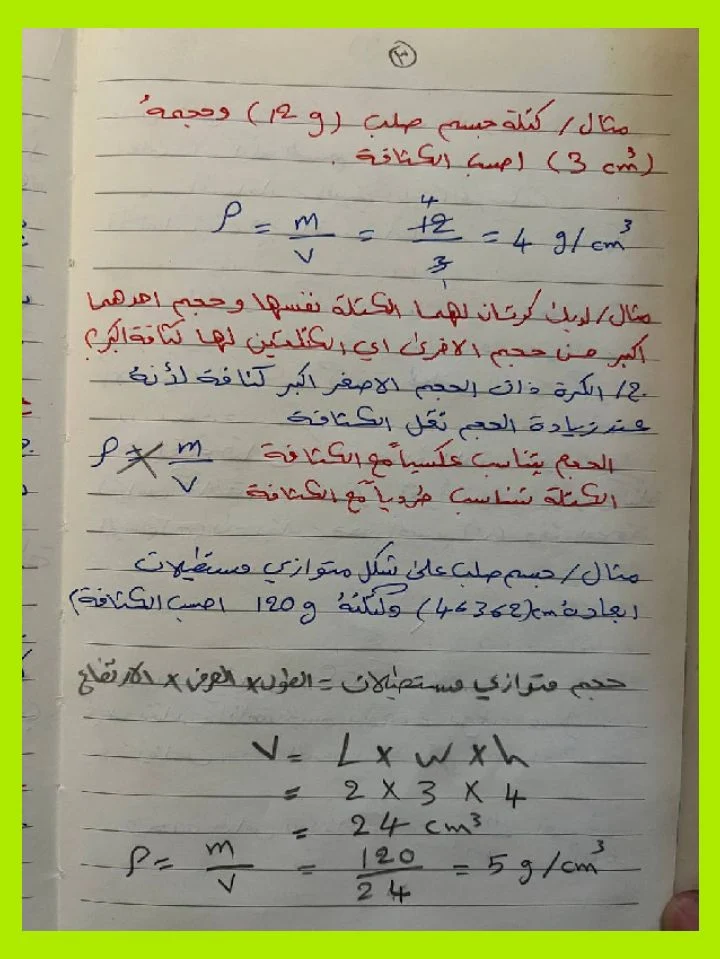 ٣
مثال/ كتلة جسم صلب (12 g) وحجمهُ
(3 cm³) احسب الكثافة .
ρ = m/v = 12/3 = 4 g/cm³
مثال/ لديك كرتان لهما الكتلة نفسها وحجم احدهما
اكبر من حجم الاخرى اي الكتلتين لها كثافة اكبر؟
ج/ الكرة ذات الحجم الاصغر اكبر كثافة لأنة
عند زيادة الحجم تقل الكثافة
الحجم يتناسب عكسياً مع الكثافة ρ = m/v
الكتلة تتناسب طردياً مع الكثافة
مثال/ جسم صلب على شكل متوازي مستطيلات
ابعادهُ cm(4،3،2) وكتلتهُ 120 g احسب الكثافة؟
حجم متوازي مستطيلات = الطول × العرض × الارتفاع
V = L × w × h
= 2 × 3 × 4
= 24 cm³
ρ = m/v = 120/24 = 5 g/cm³